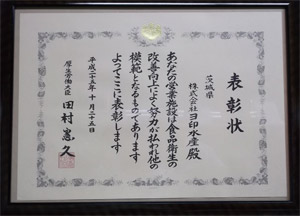 表彰状
茨城県
株式会社ヨ印水産殿
あなたの営業施設は食品衛生の
改善向上によく努力が払われ他の
模範となるものであります
よってここに表彰します
平成二十五年十月二十五日
厚生労働大臣 田村憲久